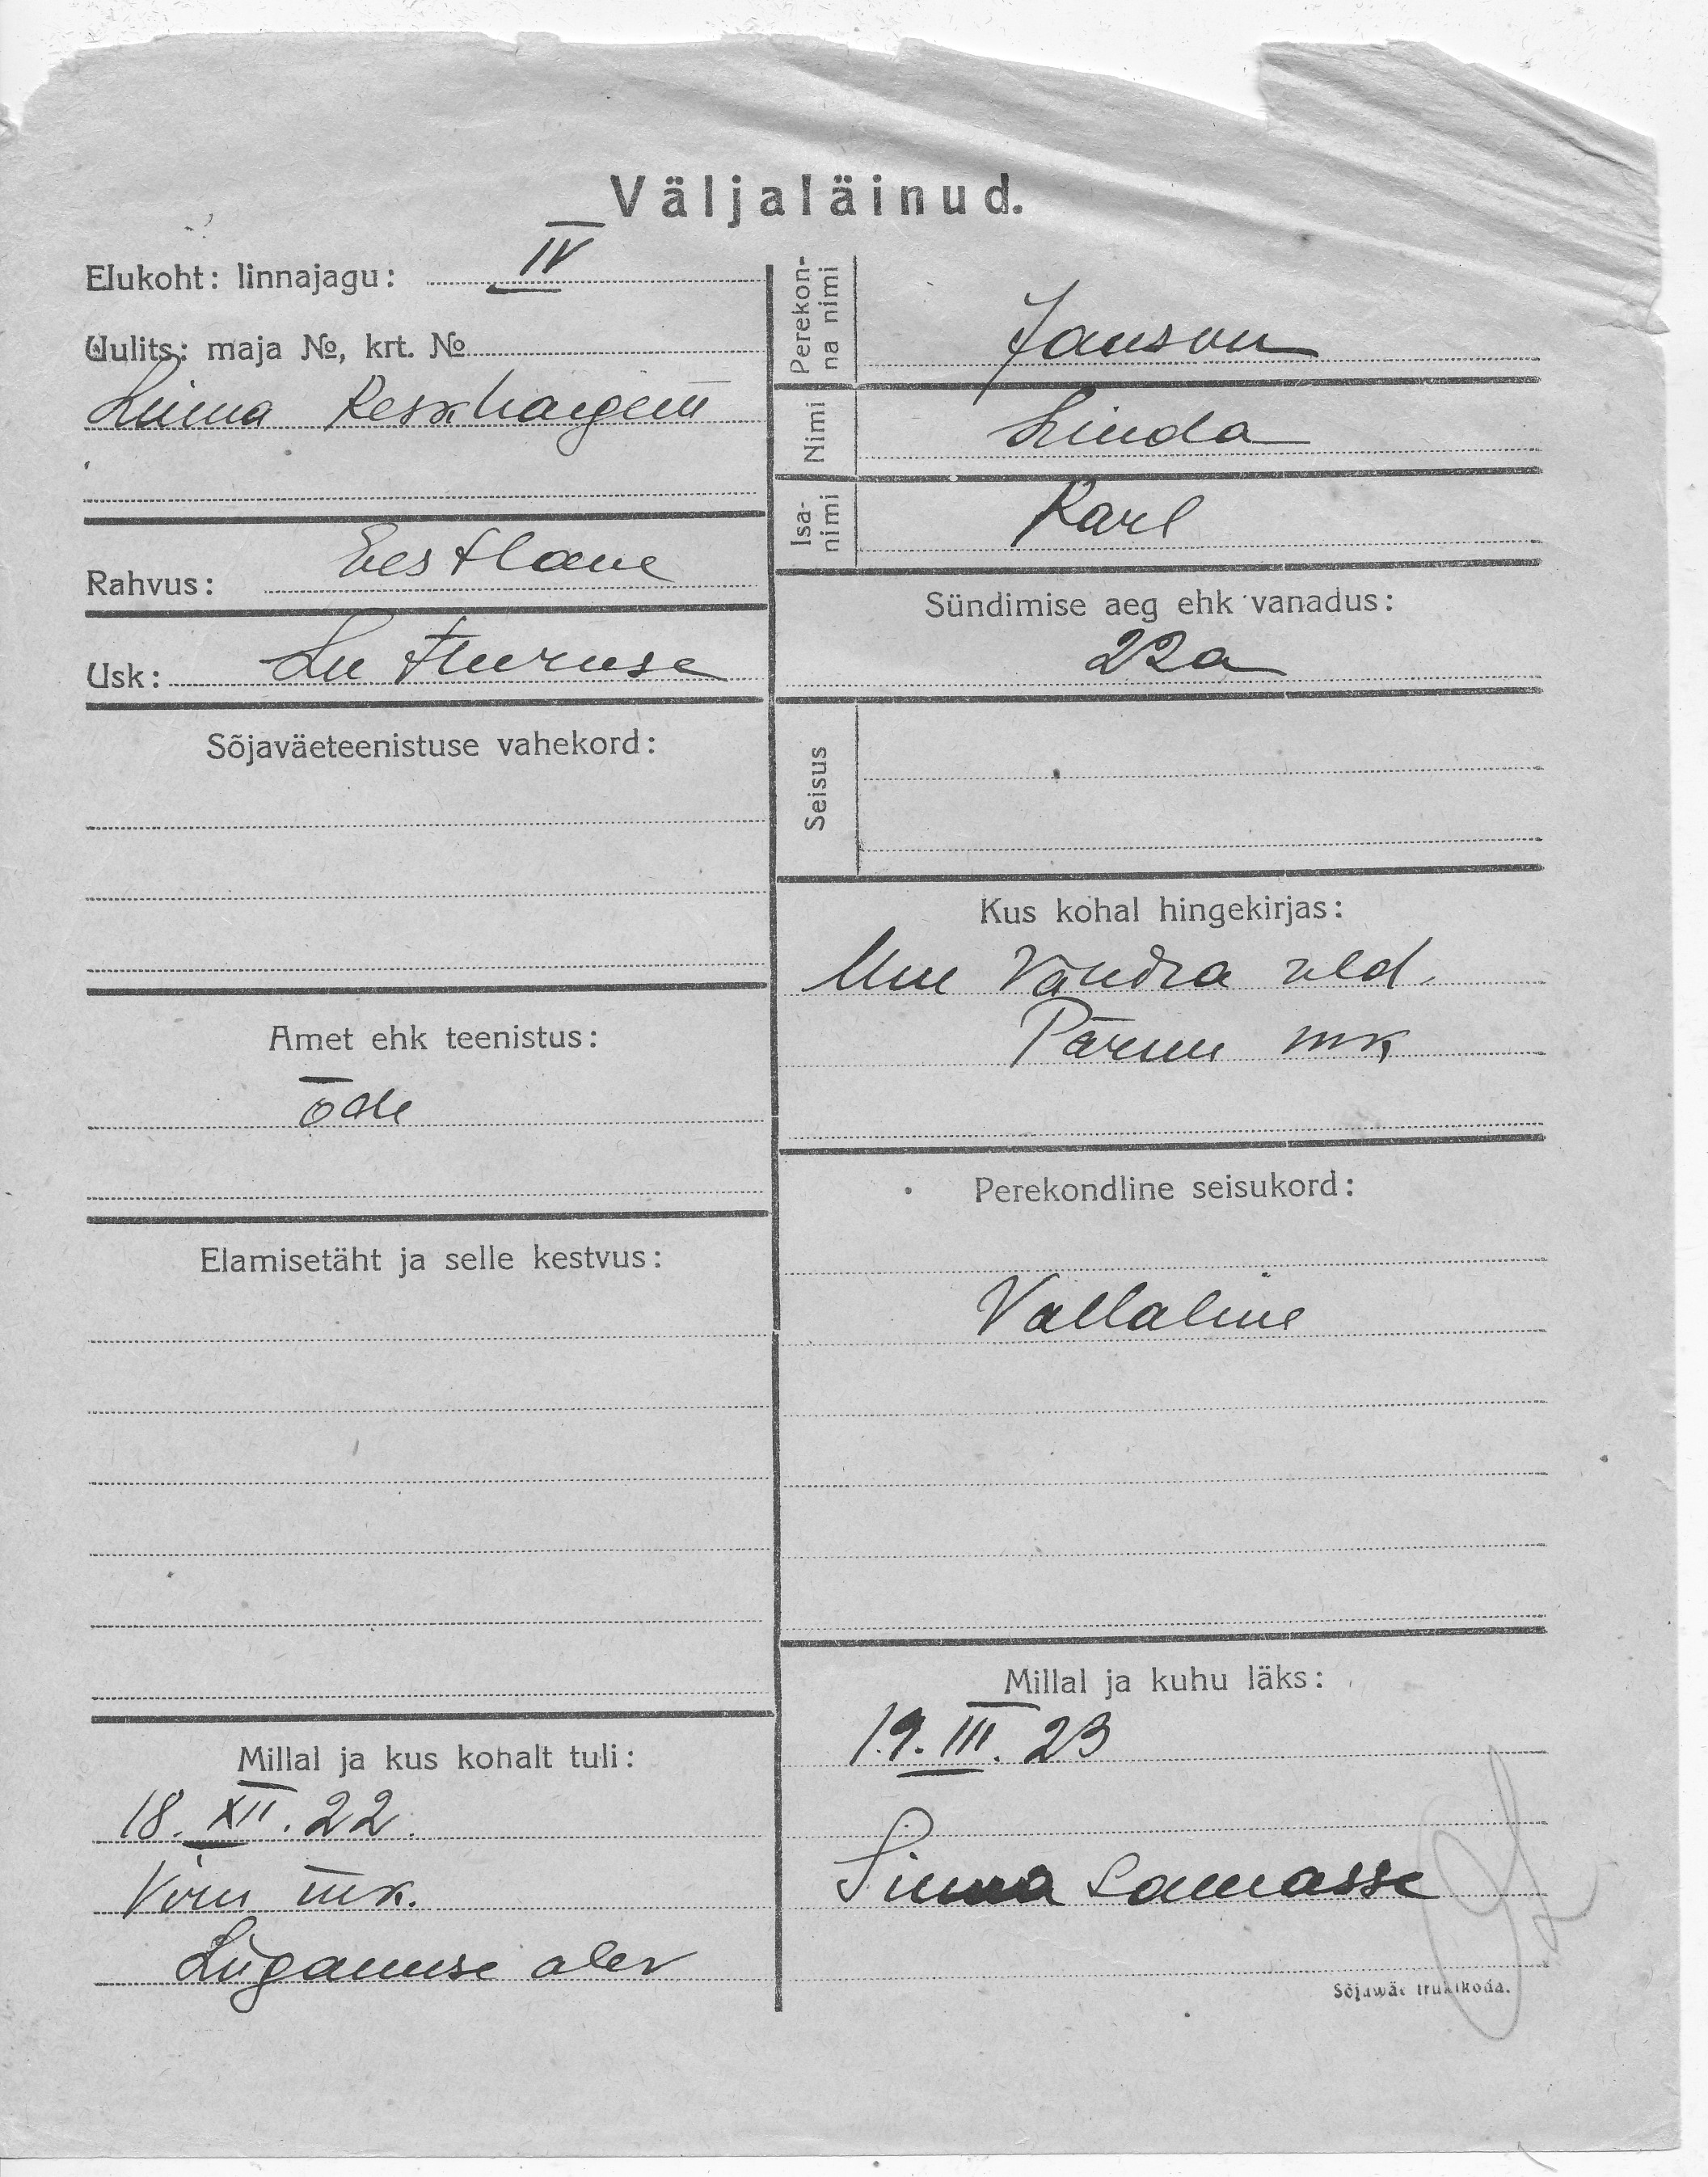 Väljaläinud.
Elukoht: linnajagu: IV
Uulits: maja №, krt. №
Linna Keskhaigem
Rahvus: Eestlane
Usk: Lutheruse
Sõjaväeteenistuse vahekord:
Amet ehk teenistus:
õde
Elamisetäht ja selle kestvus:
Millal ja kus kohalt tuli:
18. XII. 22.
Viru mk.
Lüganuse alev
Perekon-
na nimi
Janson
Nimi
Linda
Isa-
nimi
Karl
Sündimise aeg ehk vanadus:
22a
Seisus
Kus kohal hingekirjas:
Uue Vändra vld.
Pärnu mk
Perekondline seisukord:
Vallaline
Millal ja kuhu läks:
19. III. 23
Sinna samasse
Sõjawäe trükikoda.